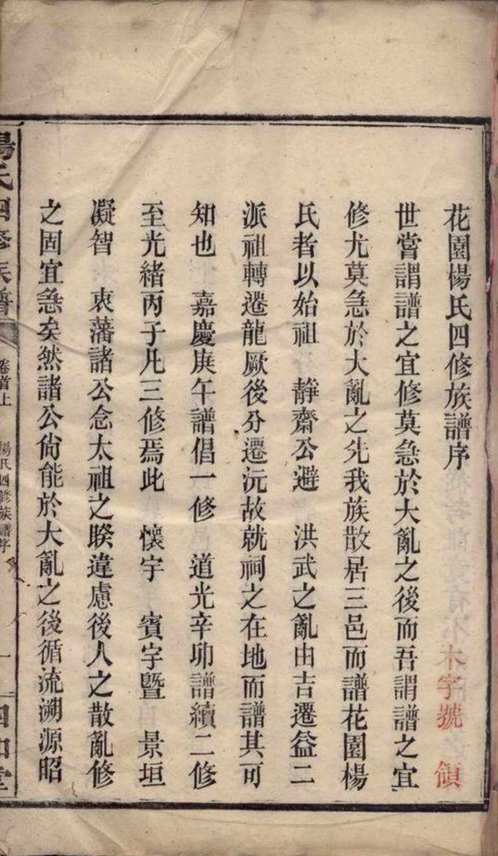 花園楊氏四修族譜序
世嘗謂譜之宜修莫急於大亂之後而吾謂譜之宜
修尤莫急於大亂之先我族散居三邑而譜花園楊
氏者以始祖 靜齋公避 洪武之亂由吉遷益二
派祖轉遷龍厥後分遷沅故就祠之在地而譜其可
知也 嘉慶庚午譜倡一修 道光辛卯譜續二修
至光緒丙子凡三修焉此 懷宇 賓宇暨 景垣
凝智 衷藩諸公念太祖之睽違慮後人之散亂修
之固宜急矣然諸公尙能於大亂之後循流溯源昭
木字號 領
楊氏四修族譜 卷首上 楊氏四修族譜序 一 四知堂